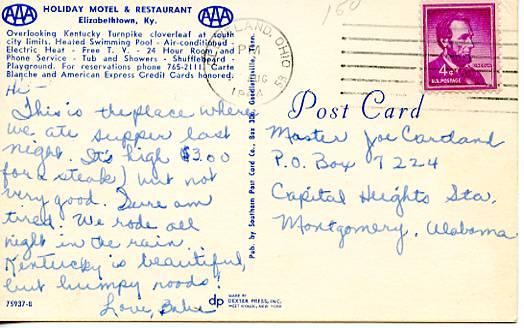 AAA HOLIDAY MOTEL & RESTAURANT AAA
Elizabethtown, Ky.
Overlooking Kentucky Turnpike cloverleaf at south
city limits, Heated Swimming Pool - Air-conditioned -
Electric Heat - Free T. V. - 24 Hour Room and
Phone Service - Tub and Showers - Shuffleboard -
Playground. For reservations phone 765-2111. Carte
Blanche and American Express Credit Cards honored.
Hi -
This is the place where
we ate supper last
night. It's high $3.00
for a steak) but not
very good. Sure am
tired. We rode all
night in the rain.
Kentucky is beautiful,
but bumpy roads!
Love,
75937-B
Pub. by Southern Post Card Co., Box 530, Goodlettsville, Tenn.
dp MADE BY
DEXTER PRESS, INC.
WEST NYACK, NEW YORK
150
OHIO
PM
4¢
U.S. POSTAGE
Post Card
Master Joe Cartland
P.O. Box 7224
Capital Heights Sta.
Montgomery, Alabama